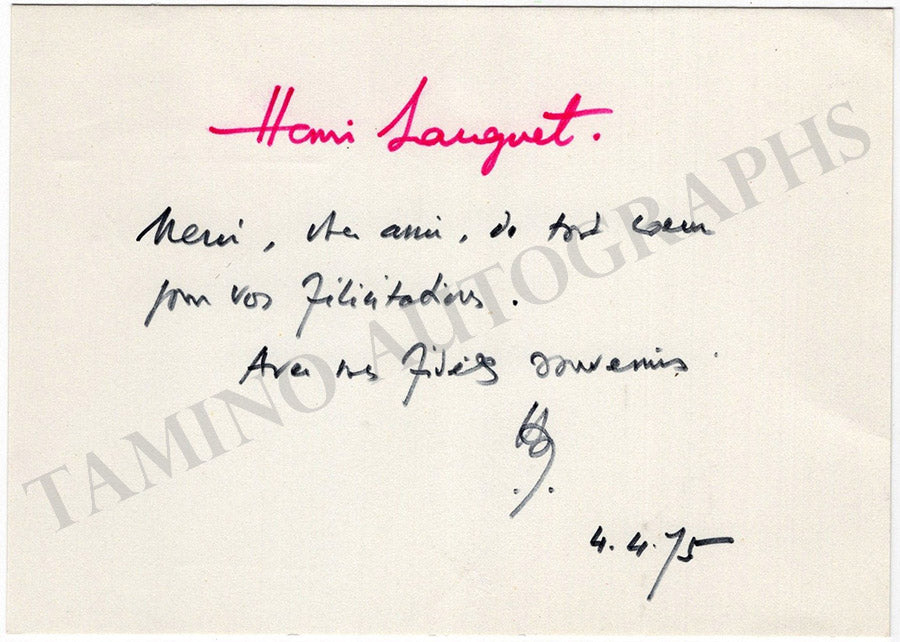 Henri Sauguet.
Merci, cher ami, de tout coeur
pour vos félicitations.
Avec mes fidèles souvenirs.
HS
4.4.75
TAMINO AUTOGRAPHS